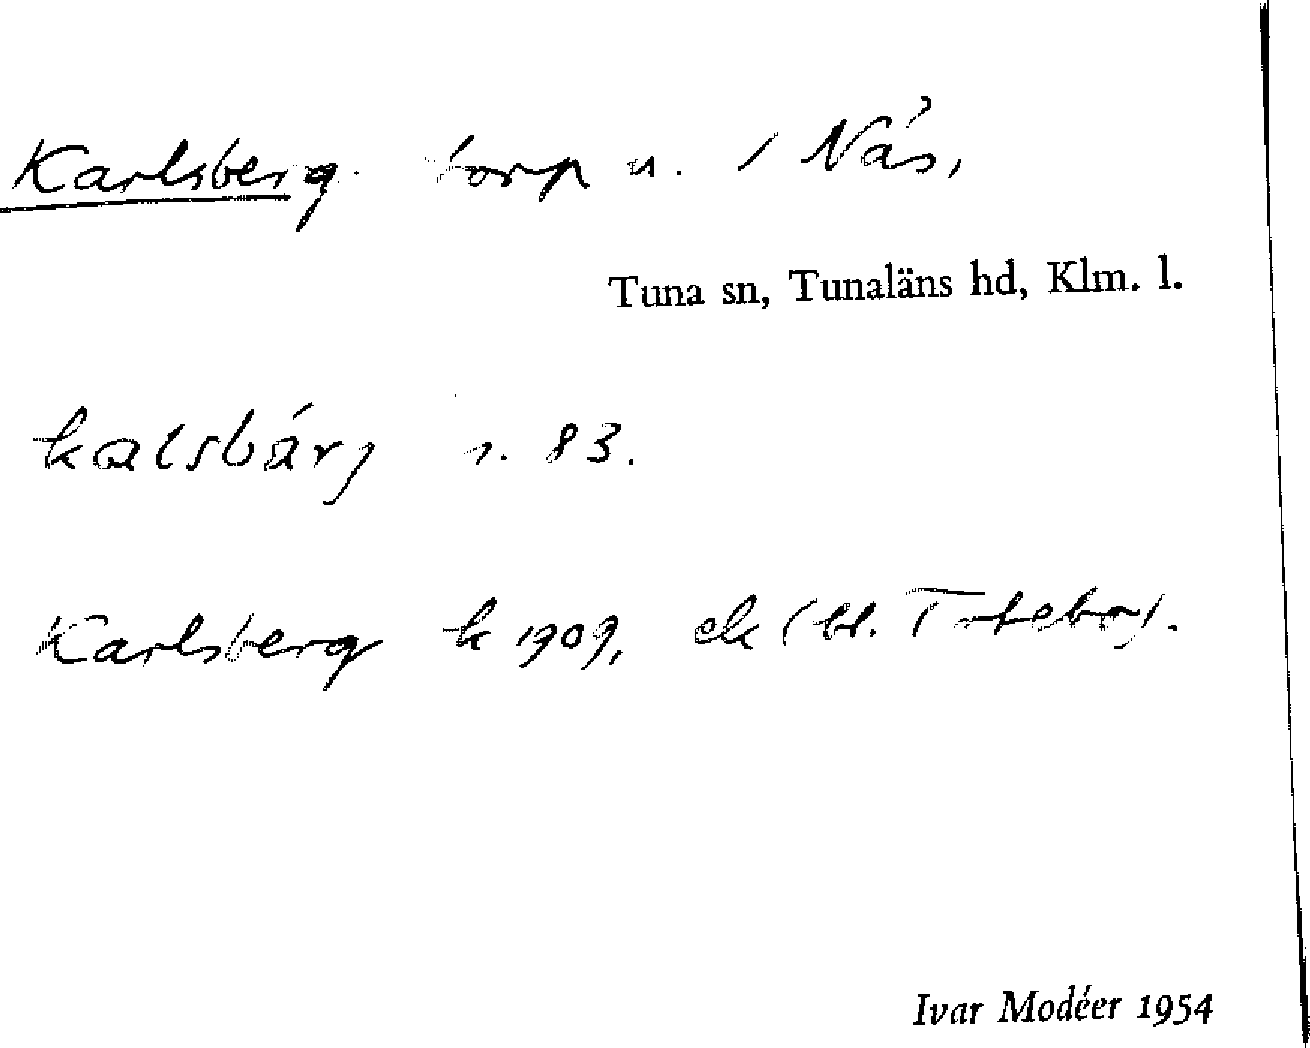 Karlsberg. torp u. / Näs,
Tuna sn, Tunaläns hd, Klm. l.
kalsbárj s. 83.
Karlsberg k 1909, ek (bl. Totebo).
Ivar Modéer 1954